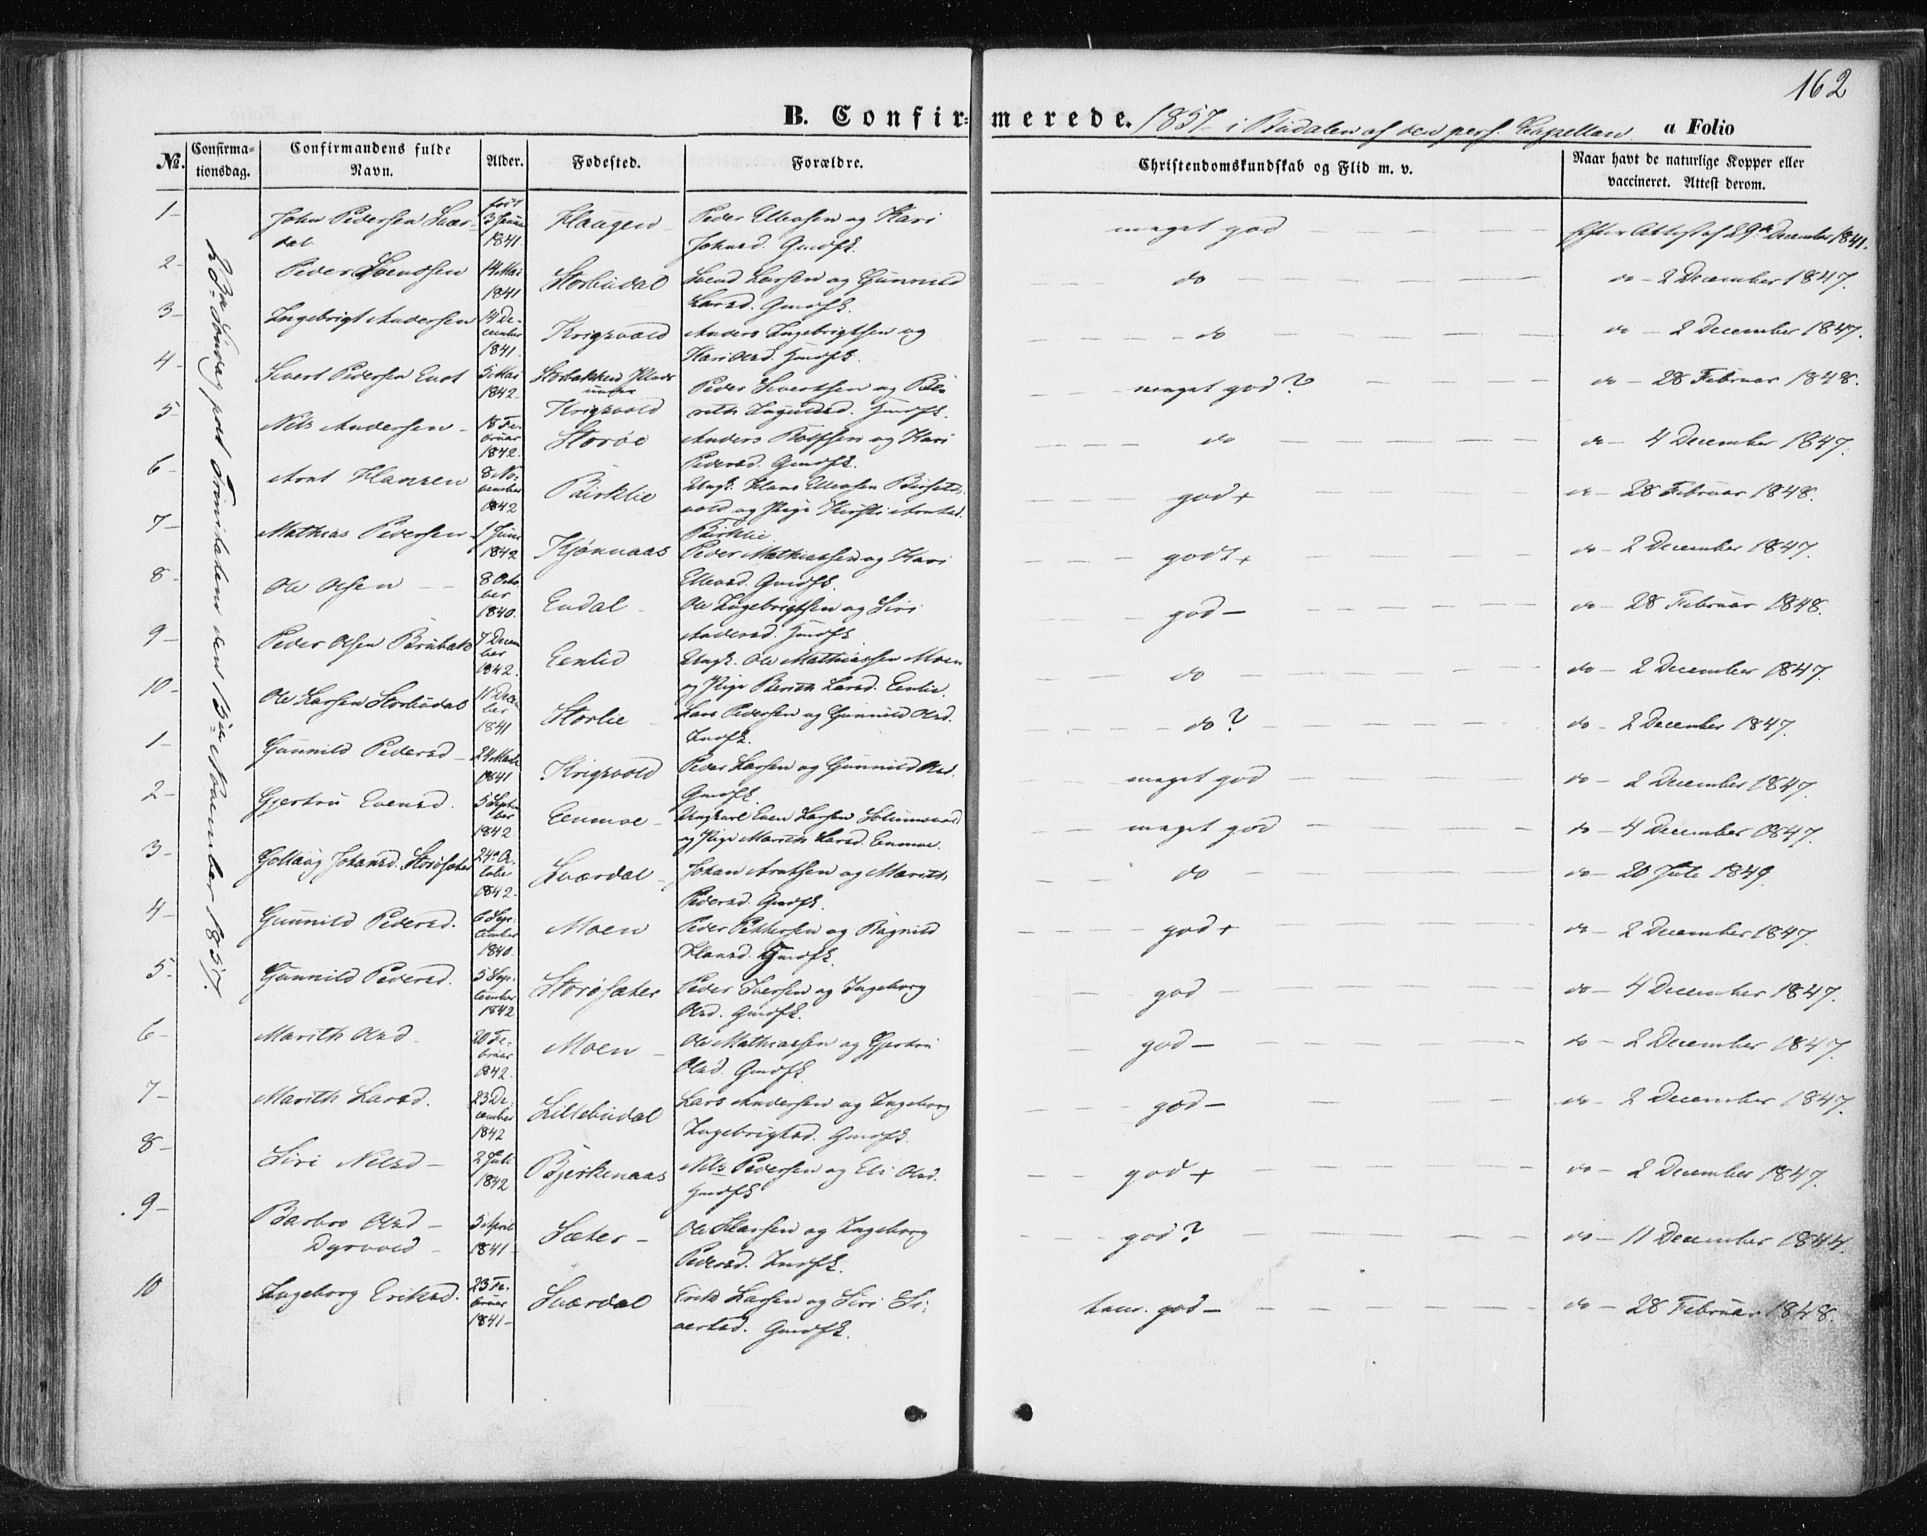 162
B. Confirmerede. 1857 i Budalen af den pers. Capellan a Folio
No. Confirmationsdag. Confirmandens fulde Navn. Alder. Fødested. Forældre. Christendomskundskab og Flid m. v. Naar havt de naturlige Kopper eller vaccineret. Attest derom.
Søndag post Trinitatis den 15de November 1857.
1 - John Pedersen Svardal født 3 Januar 1841 Haugen Peder Ellevsen og Kari Johnsd. Gmdfk. meget god Efter Attest af 29de December 1841.
2 - Peder Svendsen 14 Mai 1841 Storbudal Svend Larsen og Gunnild Larsd. Gmdfk. do do - 2 December 1847.
3 - Ingebrigt Andersen 14 December 1841. Krigsvold Anders Ingebrigtsen og Kari Olsd. Hmdfk. do do - 2 December 1847.
4 - Sivert Pedersen Enet 5 Mai 1842. Storbakken Plads under Krigsvold Peder Sivertsen og Berith Ingulsd. Hmdfk. meget god? do - 28 Februar 1848.
5 - Nils Andersen - 18 Februar 1842. Storøe Anders Rolfsen og Kari Pedersd. Gmdfk. do do - 4 December 1847.
6 - Arnt Hansen 8 November 1842 Birklie Ungk. Hans Ellevsen og Pige Kirsti Arntsd. Birklie. god + do - 28 Februar 1848.
7 - Mathias Pedersen - 1 Juni 1842 Kjønnaas Peder Mathiassen og Kari Ellevsd. Gmdfk. godt + do - 2 December 1847.
8 - Ole Olsen - 8 October 1840. Endal - Ole Ingebrigtsen og Siri Andersd. Hmdfk. god - do - 28 Februar 1848.
9 - Peder Olsen Brubak 7 December 1842. Eenlid Ungk. Ole Mathiassen Moen og Pige Berith Larsd. Eenlie. do do - 2 December 1847.
10 - Ole Larsen Storbudal 11 December 1841 Storlie - Lars Pedersen og Gunnild Olsd. Indfk. do? do - 2 December 1847.
1 - Gunnild Pedersd - 24 Marts 1841 Krigsvold Peder Larsen og Gunnild Olsd. Gmdfk. meget god do - 2 December 1847.
2 - Gjertru Evensd. 5 September 1842. Eenmoe - Ungkarl Even Larsen og Pige Marith Larsd. Eenmoe. meget god do - 4 December 1847.
3 - Gollaug Johansd. Storøsæter 24de October 1842. Sværdal - Johan Arntsen og Marith Pedersd. Gmdfk. do do - 20 Juli 1849.
4 - Gunnild Pedersd. 6 September 1840. Moen Peder Pettersen og Ragnild Hansd. Hmdfk. god + do - 2 December 1847.
5 - Gunnild Pedersd. 5 September 1842 Storøsæter Peder Iversen og Ingeborg Olsd. Gmdfk. god - do - 4 December 1847.
6 - Marith Olsd - 20 Februar 1842. Moen - Ole Mathiassen og Gjertru Olsd. Gmdfk. god - do - 2 December 1847.
7 - Marith Larsd. 23 December 1842 Lillebudal Lars Andersen og Ingeborg Ingebrigtsd. Gmdfk. god - do - 2 December 1847.
8 - Siri Nilsd - 2 Juli 1842 Bjerkenaas Nils Pedersen og Eli Olsd. Hmdfk god + do - 2 December 1847.
9 - Barbro Olsd - Dyrvold - 5 April 1841 - Sæter - Ole Hansen og Ingeborg Pedersd. Indfk. god? do - 11 December 1844.
10 Ingeborg Eriksd. 23 Februar 1841 - Sværdal Erik Larsen og Siri Sivertsd. Gmdfk. temm. god - do - 28 Februar 1848.